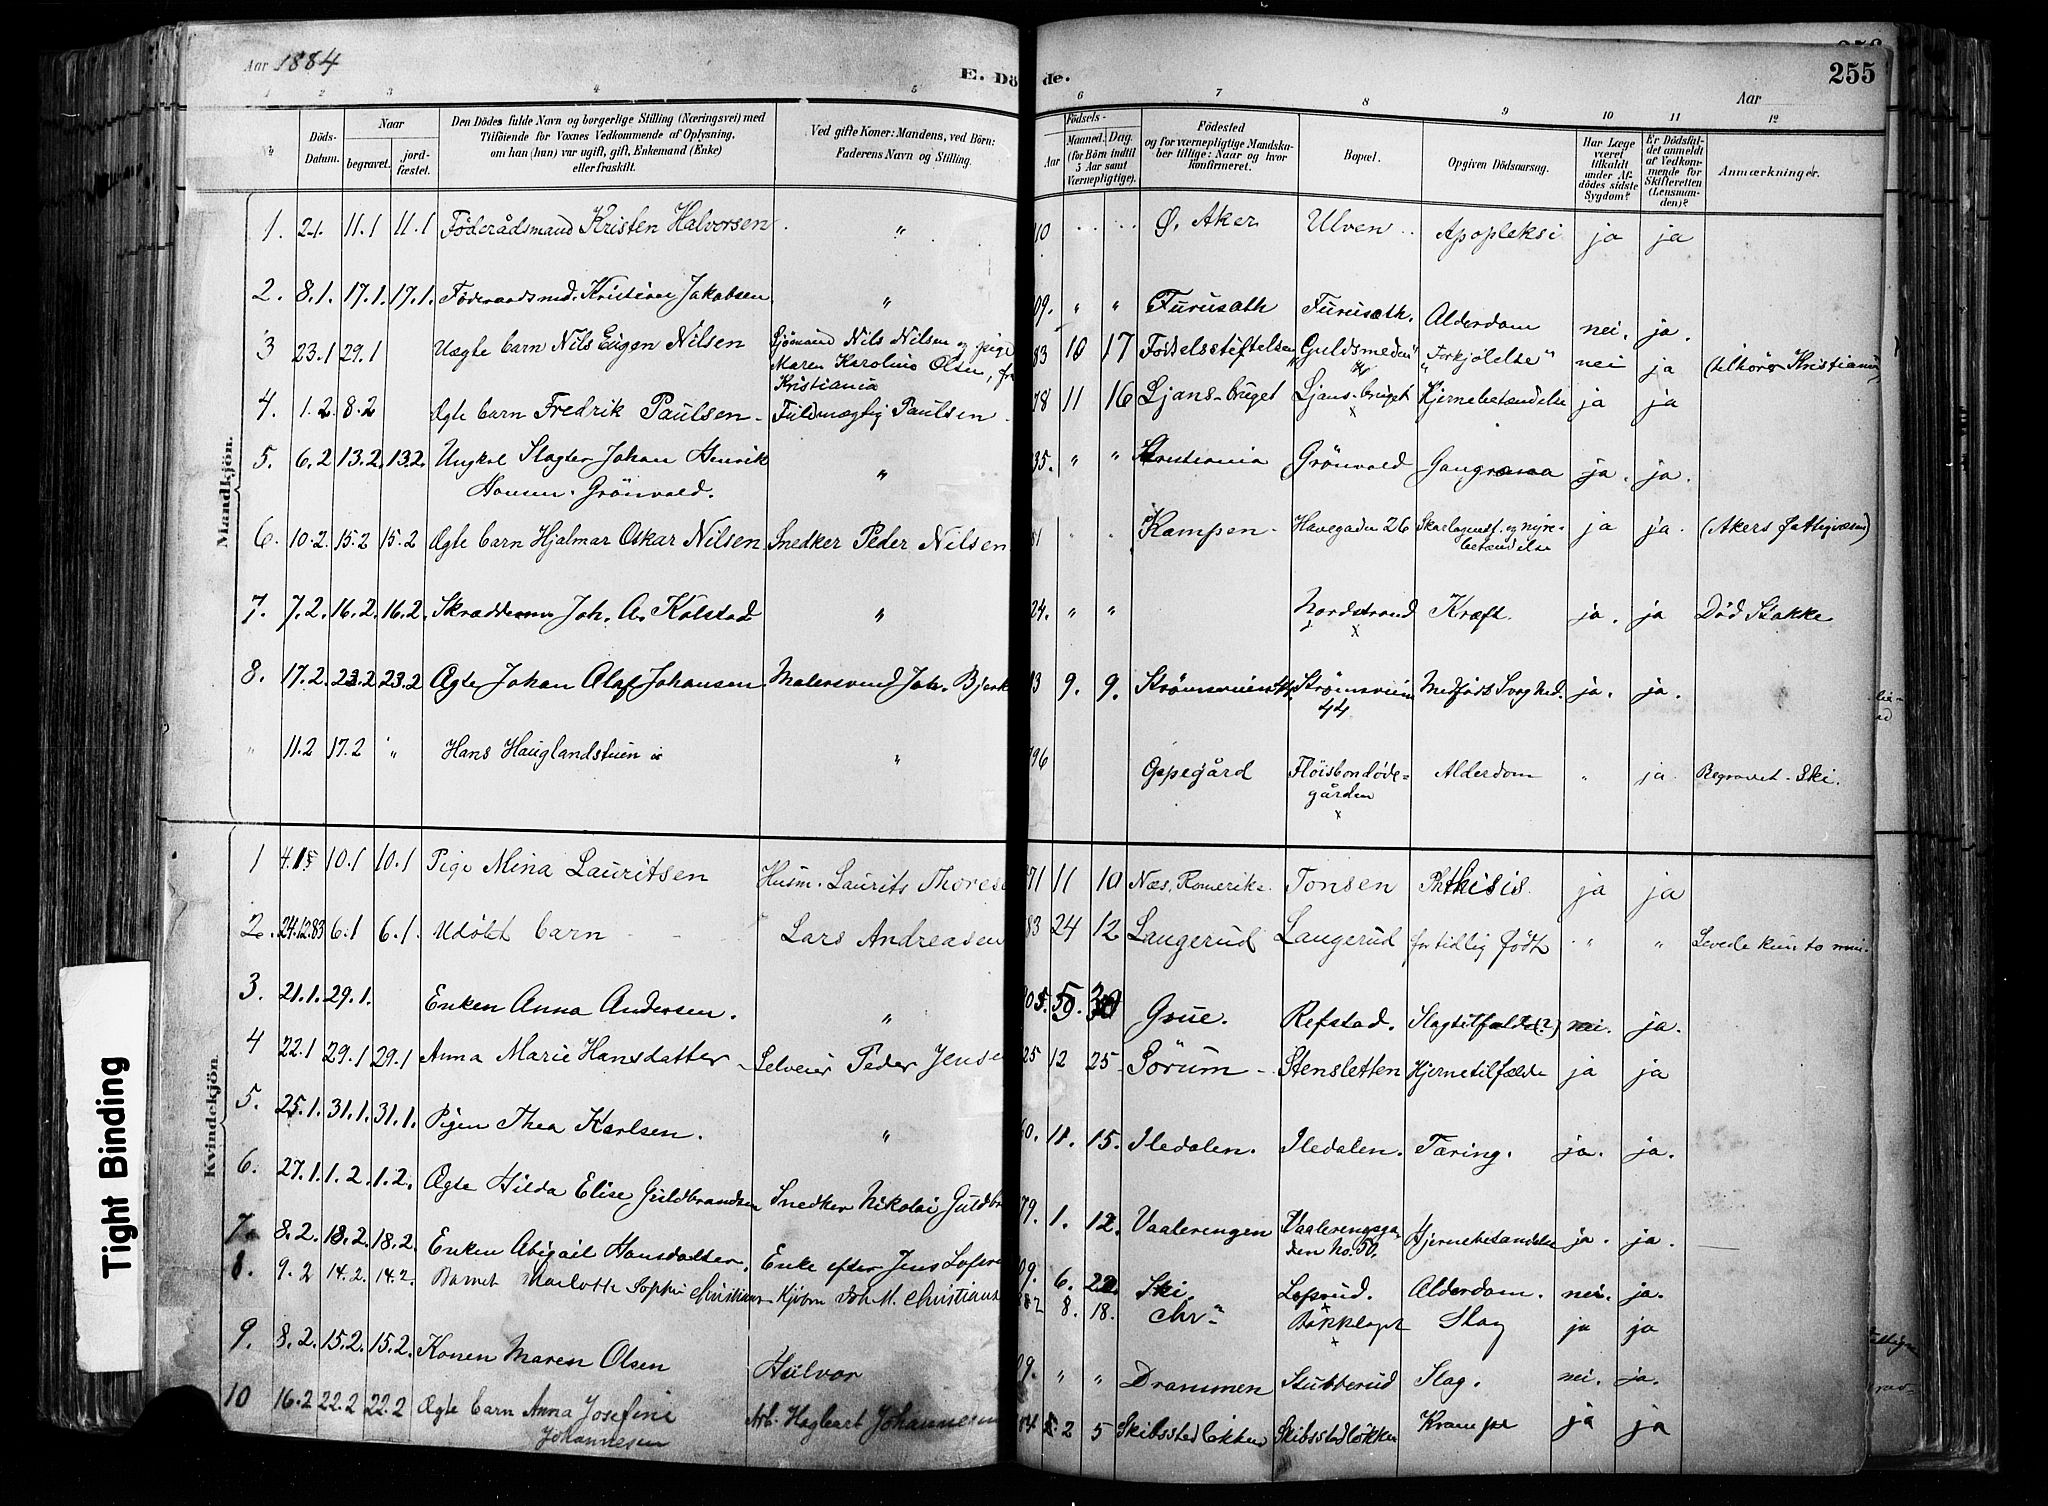 Aar 1884
E. Dö de.
Aar
255
1 2 3 4 5 6 7 8 9 10 11 12
№ Döds-Datum. Naar begravet. jord-fæstet. Den Dödes fulde Navn og borgerlige Stilling (Næringsvei) med Tilföiende for Voxnes Vedkommende af Oplysning, om han (hun) var ugift, gift, Enkemand (Enke) eller fraskilt. Ved gifte Koner: Mandens, ved Börn: Faderens Navn og Stilling. Födsels- Aar Maaned. Dag. (for Börn indtil 5 Aar samt Værnepligtige). Födested og for værnepligtige Mandskaber tillige: Naar og hvor konfirmeret. Bopæl. Opgiven Dödsaarsag. Har Læge været tilkaldt under Afdödes sidste Sygdom? Er Dödsfaldet anmeldt af Vedkommende for Skifteretten (Lensmanden)? Anmærkninger.
Mandkjön.
1. 2.1. 11.1 11.1 Föderådsmand Kristen Halvorsen " 10 Ø. Aker Ulven Apopleksi ja ja
2. 8.1. 17.1. 17.1. Föderaadsmd. Kristian Jakobsen " 09. " " Furusæth Furusæth. Alderdom nei. ja.
3 23.1 29.1 Uægte barn Nils Eugen Nilsen Sjömand Nils Nilsen og pige
Maren Karoline Olsen, fra
Kristiania 83 10 17 Födselsstiftelsen "Guldsmeden" "Forkjölelse" nei ja (tilhörer Kristiania)
4. 1.2. 8.2 Ægte barn Fredrik Paulsen Fuldmægtig Paulsen 78 11 16 Ljans-bruget Ljans-bruget Hjernebetændelse ja ja
5. 6.2 13.2. 13.2. Ungkal Slagter Johan Henrik
Hansen. Grönvold. " 35. " " Kristiania Grönvold Gangræna ja. ja.
6. 10.2. 15.2 15.2 Ægte barn Hjalmar Oskar Nilsen Snedker Peder Nilsen 81 Kampen Havegaden 26 Skarlagensf. og nyre-
betændelse ja ja. (Akers fattigvæsen)
7. 7.2. 16.2. 16.2. Skrædder Joh. A. Kolstad " 24. " " Nordstrand Kræft. ja. ja Död Stokke
8. 17.2. 23.2 23.2 Ægte Johan Olaf Johansen Malersvend Joh. Bjerk 83 9. 9. Strömsveien Strömsveien
44 Medfödt Svaghed. ja. ja.
" 11.2 17.2 " Hans Hauglandstuen " 796 Oppegård Flöisbondöde-
gården Alderdom " ja Begravet Ski.
Kvindekjön.
1 4.1 10.1 10.1 Pige Mina Lauritsen Husm. Laurits Thorese 71 11 10 Næs, Romerike Tonsen Phthisis. ja ja
2. 24.12.83 6.1 6.1. Udöbt barn Lars Andreasen 83 24 12 Langerud Langerud for tidlig födt " " Levede kun to min.
3. 21.1. 29.1. Enken Anna Andersen. " 05. 5. 30 Grue. Refstad. Slagtilfælde(?) nei. ja.
4 22.1 29.1 29.1 Anna Marie Hansdatter Selveier Peder Jense 25 12 25 Sörum Stensletten Hjernetilfælde ja ja
5. 25.1. 31.1. 31.1. Pigen Thea Karlsen. " 60. 11. 15. Iledalen. Iledalen. Tæring. ja. ja.
6. 27.1. 1.2. 1.2. Ægte Hilda Elise Guldbrandsen Snedker Nikolai Guldbr 79. 1. 12. Vaalerengen Vaalerengsga-
den No. 50. Hjernebetændelse ja. ja.
7. 8.2. 18.2. 18.2. Enken Abigail Hansdatter. Enke efter Jens Lofsru 09. 6. 22. Ski. Lofsrud. Alderdom. nei. ja.
8. 9.2 14.2. 14.2. Barnet Charlotte Sophie Christians Kjöbm. Joh M. Christians 882 8. 18. Chr" Bækkelaget Slag ja ja
9. 8.2. 15.2. 15.2. Konen Maren Olsen Halvor 09. " " Drammen Stubberud Slag. nei. ja.
10 16.2 22.2 22.2 Ægte barn Anna Josefine
Johannesen Arb. Hagbart Johannesen 84 2 5 Skibsstedlökken Skibsstedlökken Krampe ja ja
Tight Binding